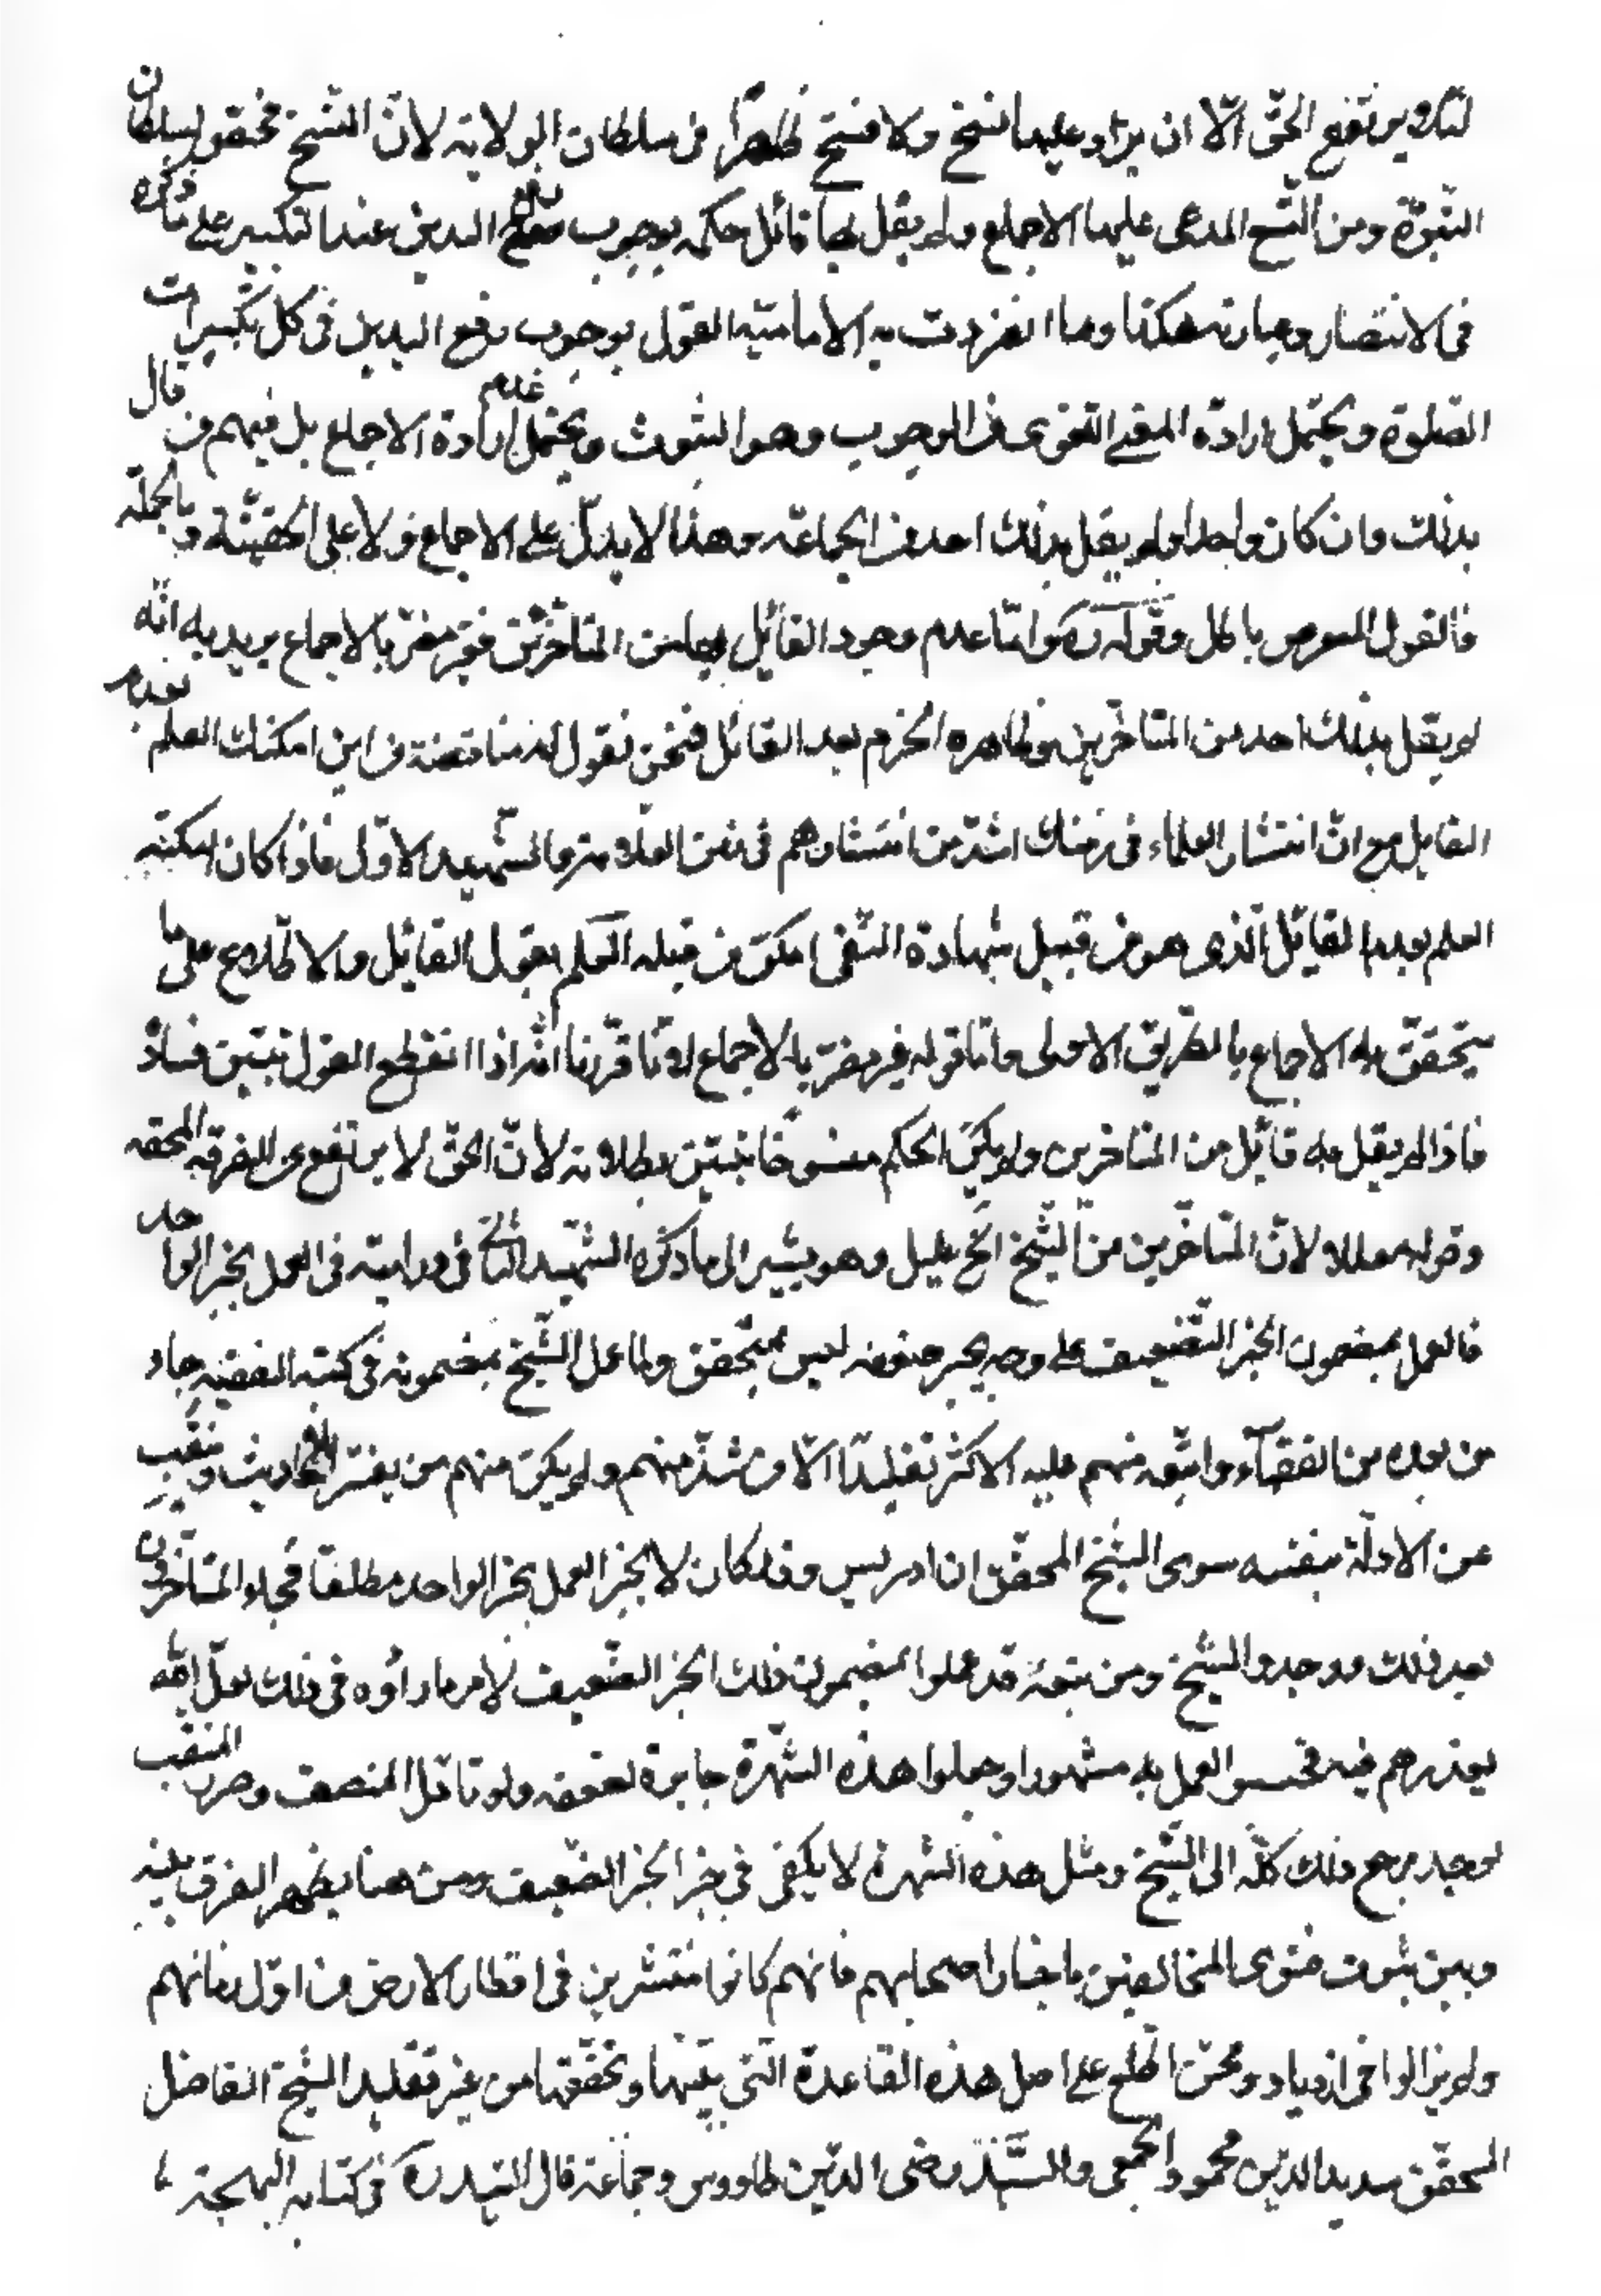 لئلا يرتفع الحق الا ان يراد عليها نسخ ولا فسخ ظاهرا في سلطان الولاية لان النسخ مختص بسلطان
النبوة ومن النسخ المدعى عليها الاجماع ولم يقل بها قائل حكمه بوجوب رفع اليدين عند التكبير على ما ذكره
في الانتصار وعبارته هكذا وما انفردت به الامامية القول بوجوب رفع اليدين في كل تكبيرات
الصلوة ويحتمل ارادة المعنى اللغوى من الوجوب وهو الثبوت ويحتمل عدم ارادة الاجماع بل فيهم من قال
بذلك وان كان واحدا ولم يقل بذلك احد من الجماعة وهذا لا يدل على الاجماع ولا على الحقيقة وبالجملة
فالقول المعروض باطل وقوله ره واما عدم وجود القائل بها من المتاخرين فغير مضر بالاجماع يريد به انه
لم يقل بذلك احد من المتاخرين وظاهره الجزم بعدم القائل فنحن نقول له مناقضة من اين امكنك العلم بعدم
القايل مع ان انتشار العلماء في زمنك اشد من انتشارهم في زمن العلامة والشهيد الاول فاذا كان امكنه
العلم بعدم القايل الذى هو من قبيل شهادة النفى امكن من قبله العلم بقول القائل والاطلاع على ما
يتحقق به الاجماع بالطريق الاولى واما قوله فغير مضر بالاجماع لانا قررنا انه اذا انقطع القول تبين فساده
فاذا لم يقل به قائل من المتاخرين ولم يكن الحكم منسوخا تبين بطلانه لان الحق لا يرتفع عن الفرقة المحقة
وقوله معللا ولان المتاخرين من الشيخ الخ عليل وهو يشير الى ما ذكره الشهيد الثانى في درايته في العمل بخبر الواحد
فالعمل بمضمون الخبر الضعيف على وجه يجبر ضعفه ليس بمتحقق ولما عمل الشيخ بمضمونه في كتبه الفقهية جاء
من بعده من الفقهاء واتبعه منهم عليه الاكثر تقليدا الا من شذ منهم ولم يكن منهم من يفتر الاحاديث وينقب
عن الادلة بنفسه سوى الشيخ المحقق ابن ادريس وقد كان لا يجيز العمل بخبر الواحد مطلقا فجاء المتاخرون
بعد ذلك ووجدوا الشيخ ومن تبعه قد عملوا بمضمون ذلك الخبر الضعيف لامر ما راوه في ذلك لعل الله
يعذرهم فيه فحسبوا العمل به مشهورا وجعلوا هذه الشهرة جابرة لضعفه ولو تامل المنصف وحرر المنقب
لوجد مرجع ذلك كله الى الشيخ ومثل هذه الشهرة لا يكفى في جبر الخبر الضعيف ومن هنا يظهر الفرق بينه
وبين ثبوت فتوى المخالفين باخبار اصحابهم فانهم كانوا منتشرين في اقطار الارض من اول زمانهم
ولم يزالوا في ازدياد وممن اطلع على اصل هذه القاعدة التى بينها وتحققها من غير تقليد الشيخ الفاضل
المحقق سديد الدين محمود الحمصى والسيد رضى الدين طاووس وجماعة قال السيد ره في كتابه البهجة